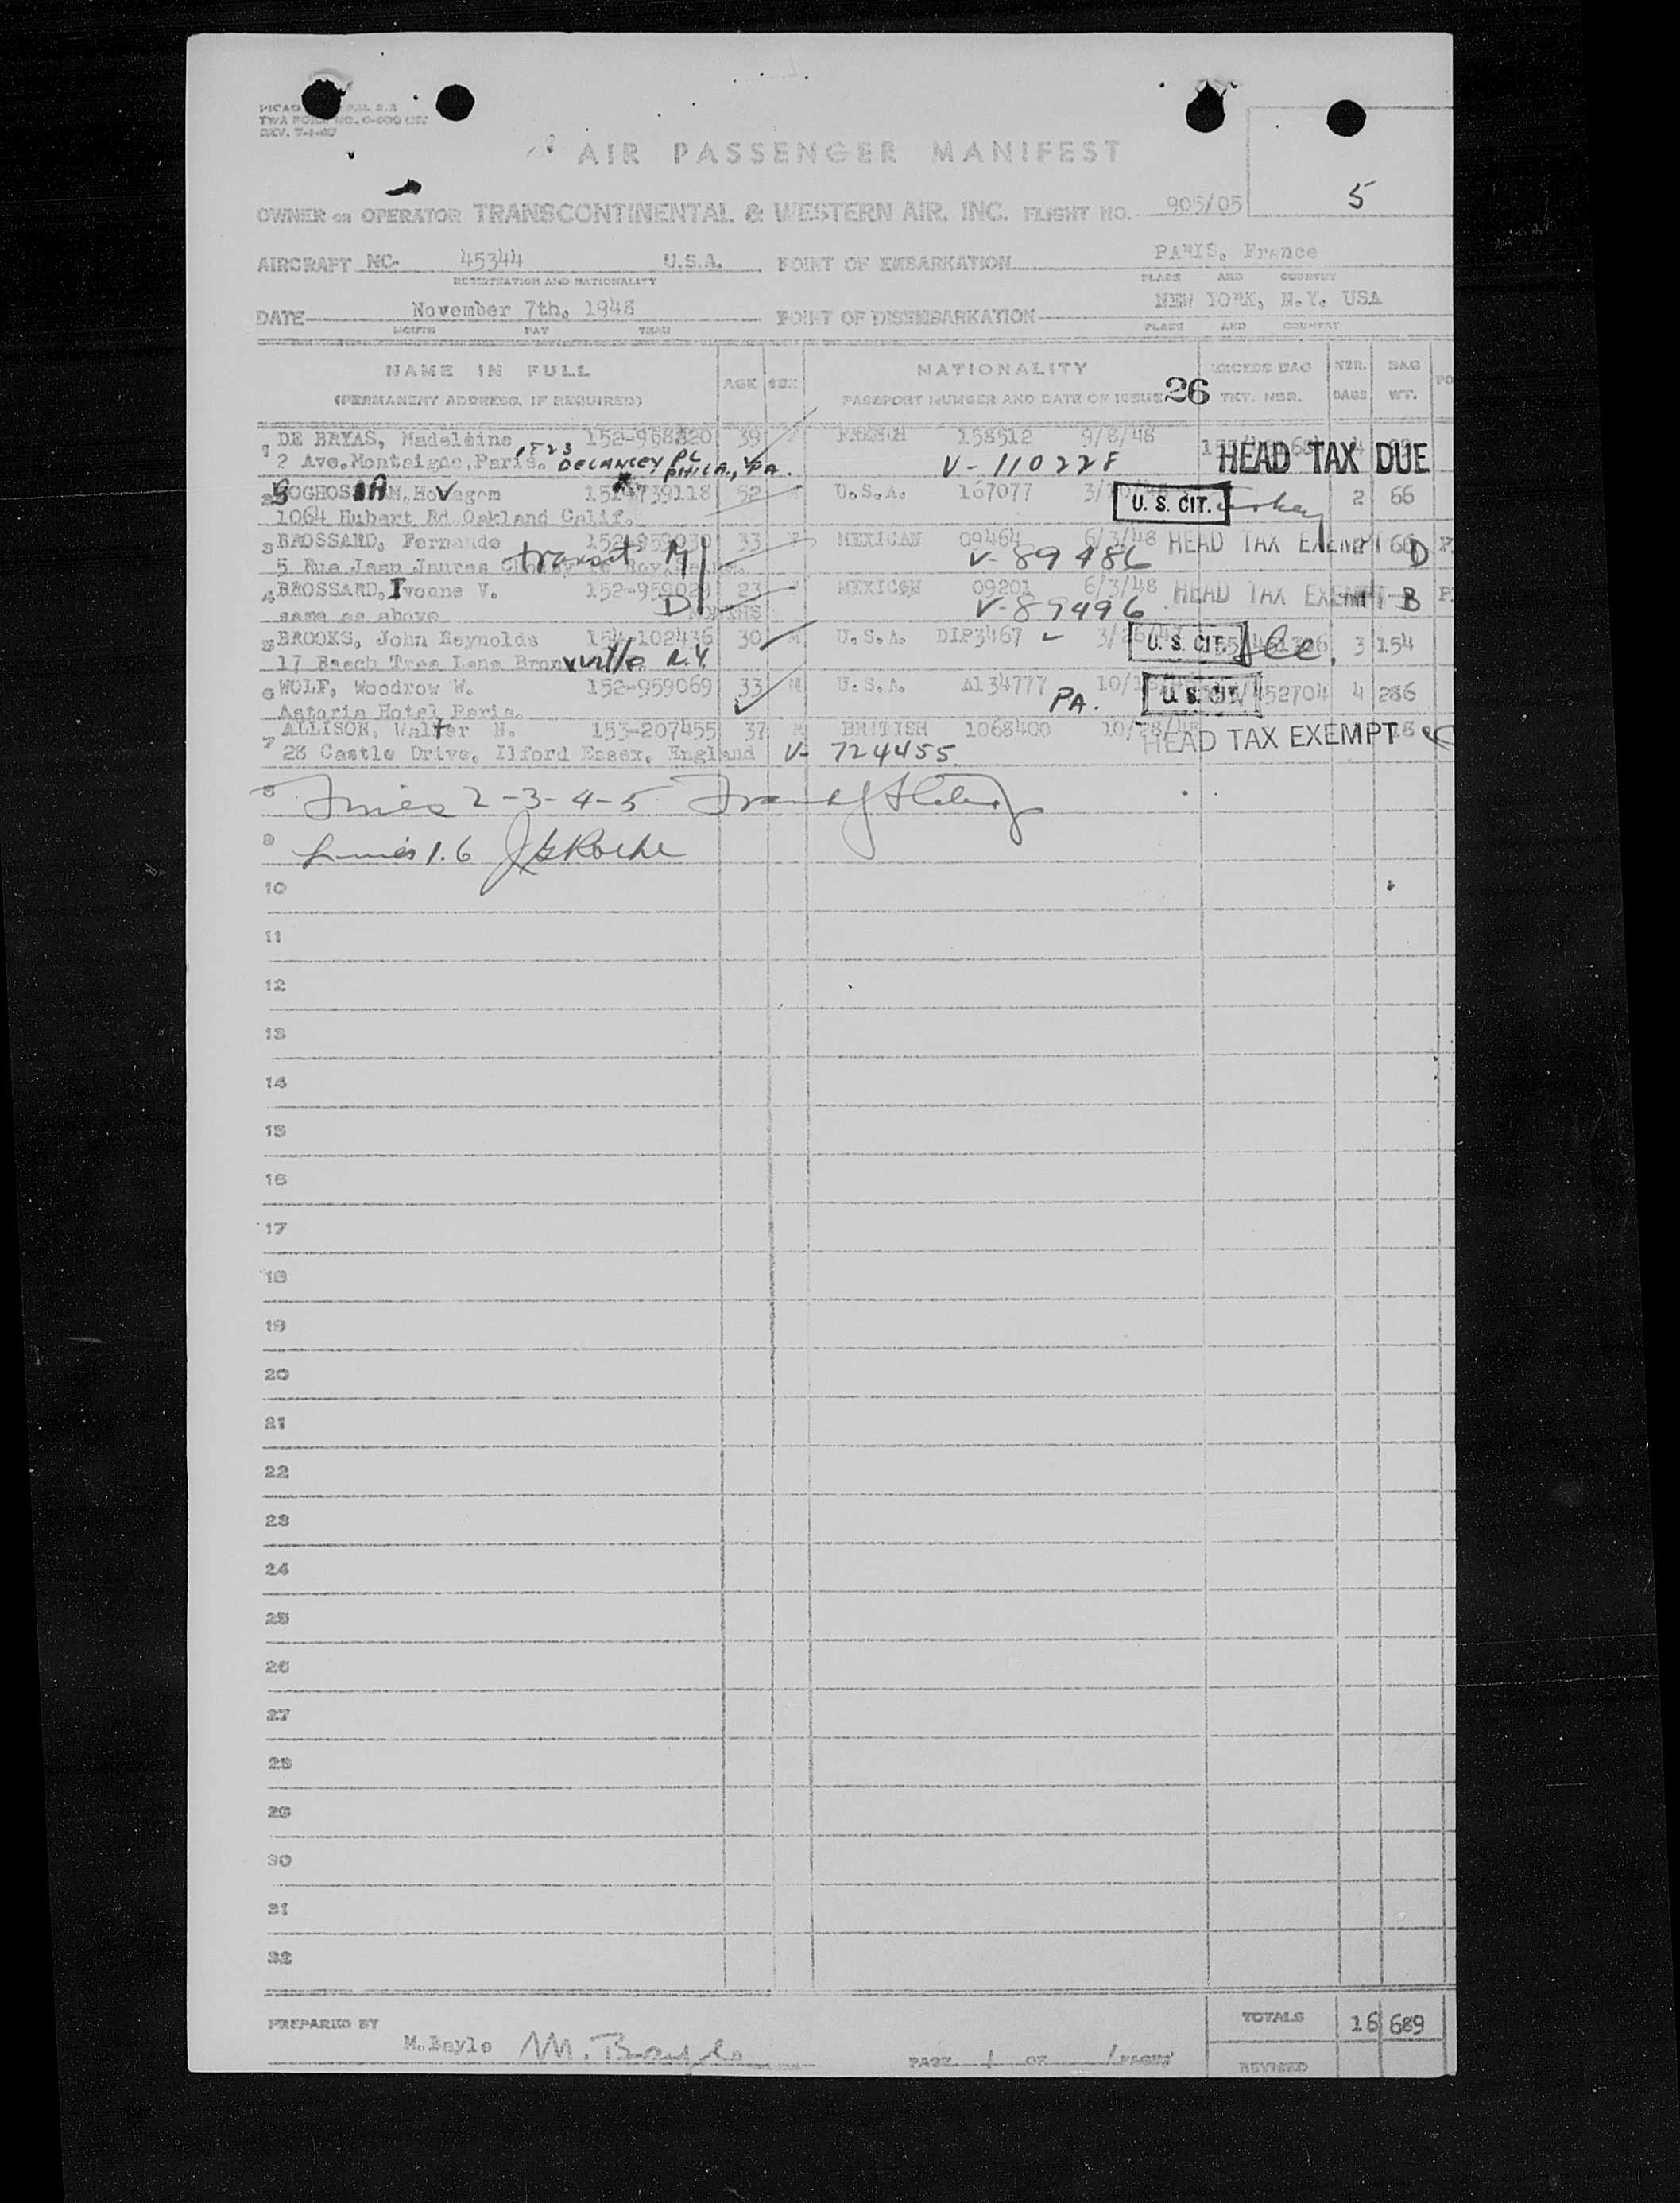 REV. 7-1-47
AIR PASSENGER MANIFEST
5
OWNER OR OPERATOR TRANSCONTINENTAL & WESTERN AIR, INC. FLIGHT NO. 905/05
AIRCRAFT NC- 45344 U.S.A. POINT OF EMBARKATION PARIS, France
REGISTRATION AND NATIONALITY PLACE AND COUNTRY
DATE November 7th, 1948 POINT OF DISEMBARKATION NEW YORK, N.Y. USA
MONTH DAY YEAR PLACE AND COUNTRY
NAME IN FULL AGE SEX NATIONALITY EXCESS BAG NBR. BAG
(PERMANENT ADDRESS, IF REQUIRED) PASSPORT NUMBER AND DATE OF ISSUE 26 TKT. NBR. BAGS WT.
1 DE BRYAS, Madeleine 152-958820 39 F FRENCH 158512 9/8/48 HEAD TAX DUE
2 Ave. Montaigne, Paris. 1823 DELANCEY PL PHILA., PA. V-110228
2 BOGHOSIAN, Hovagem 739118 52 M U.S.A. 167077 U.S. CIT. Turkey 2 66
1064 Hubert Rd Oakland Calif.
3 BROSSARD, Fernande 152-959030 33 F MEXICAN 09464 6/3/48 HEAD TAX EXEMPT 66 D
5 Rue Jean Jaures transit V-89486
4 BROSSARD, Yvonne V. 152-959029 23 MEXICAN 09201 6/3/48 HEAD TAX EXEMPT B
same as above D V-89496
5 BROOKS, John Reynolds 154-102436 30 M U.S.A. DIP3467 U.S. CIT. 3 154
17 Beech Tree Lane Bronxville N.Y.
6 WOLF, Woodrow W. 152-959069 33 M U.S.A. A134777 PA. U.S. CIT. 452704 4 286
Astoria Hotel Paris.
7 ALLISON, Walter N. 153-207455 37 M BRITISH 1068400 HEAD TAX EXEMPT 18
28 Castle Drive, Ilford Essex, England V- 724455
8 Lines 2-3-4-5
9 Lines 1.6 Roche
10
11
12
13
14
15
16
17
18
19
20
21
22
23
24
25
26
27
28
29
30
31
32
PREPARED BY TOTALS 16 689
M. Bayle M. Bayle PAGE 1 OF 1 PAGES REVISED